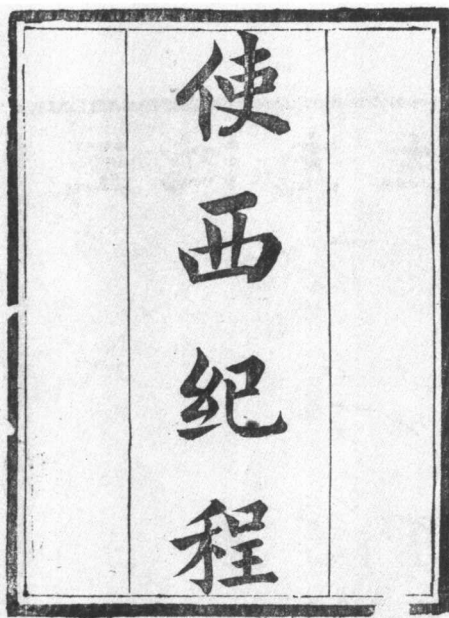 使西纪程